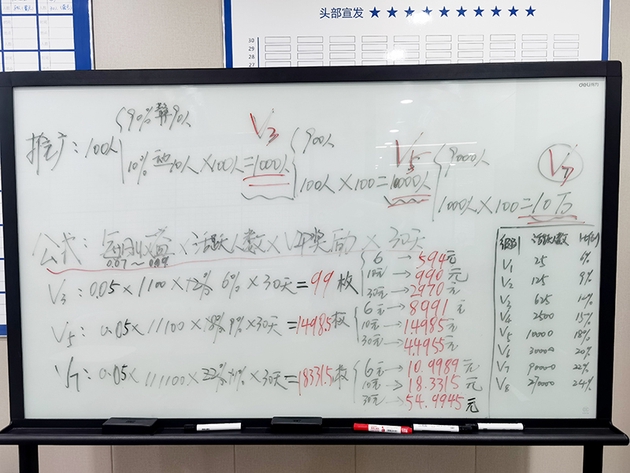 头部宣发 ★★★★★★★★★★★
30
29
28
deli
{90% 90人
V3
{900人
V5
{9000人
V7
推广：100人
10% 10人×100人=1000人
100人×100=10000人
1000人×100=10万
公式： ×活跃人数×V 奖励×30天
0.07～
V3：0.05×1100×12% 6%×30天=99枚
6 →594元
10元→990元
30元→2970元
V5：0.05×11100×18% 9%×30天=14985枚
6元→8991元
10元→14985元
30元→44955元
V7：0.05×111100×22% ×30天=183315枚
6元→10.9989元
10元→18.3315元
30元→54.9945元
级别 活跃人数
V1 25 6%
V2 125 9%
V3 625 12%
V4 2500 15%
V5 10000 18%
V6 30000 20%
V7 90000 22%
V8 270000 24%